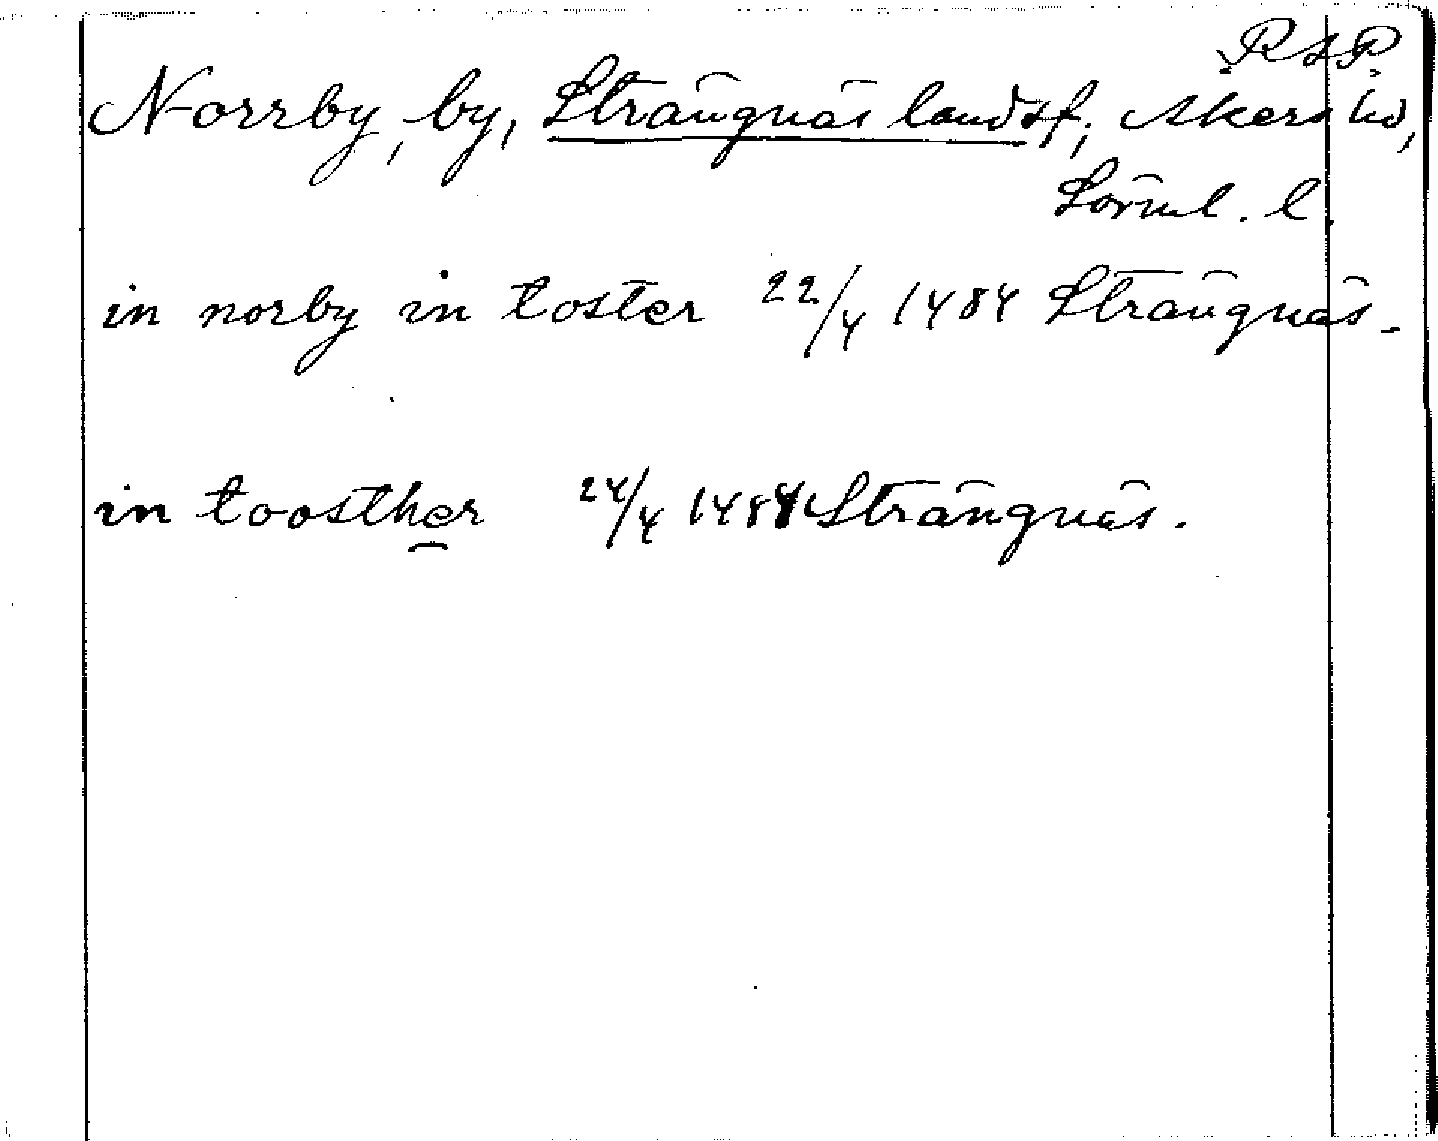 RAP
Norrby, by, Strängnäs landsf, Åkers hd,
Södml. l.
in norby in toster 22/4 1484 Strängnäs.
in toosther 24/4 1484 Strängnäs.